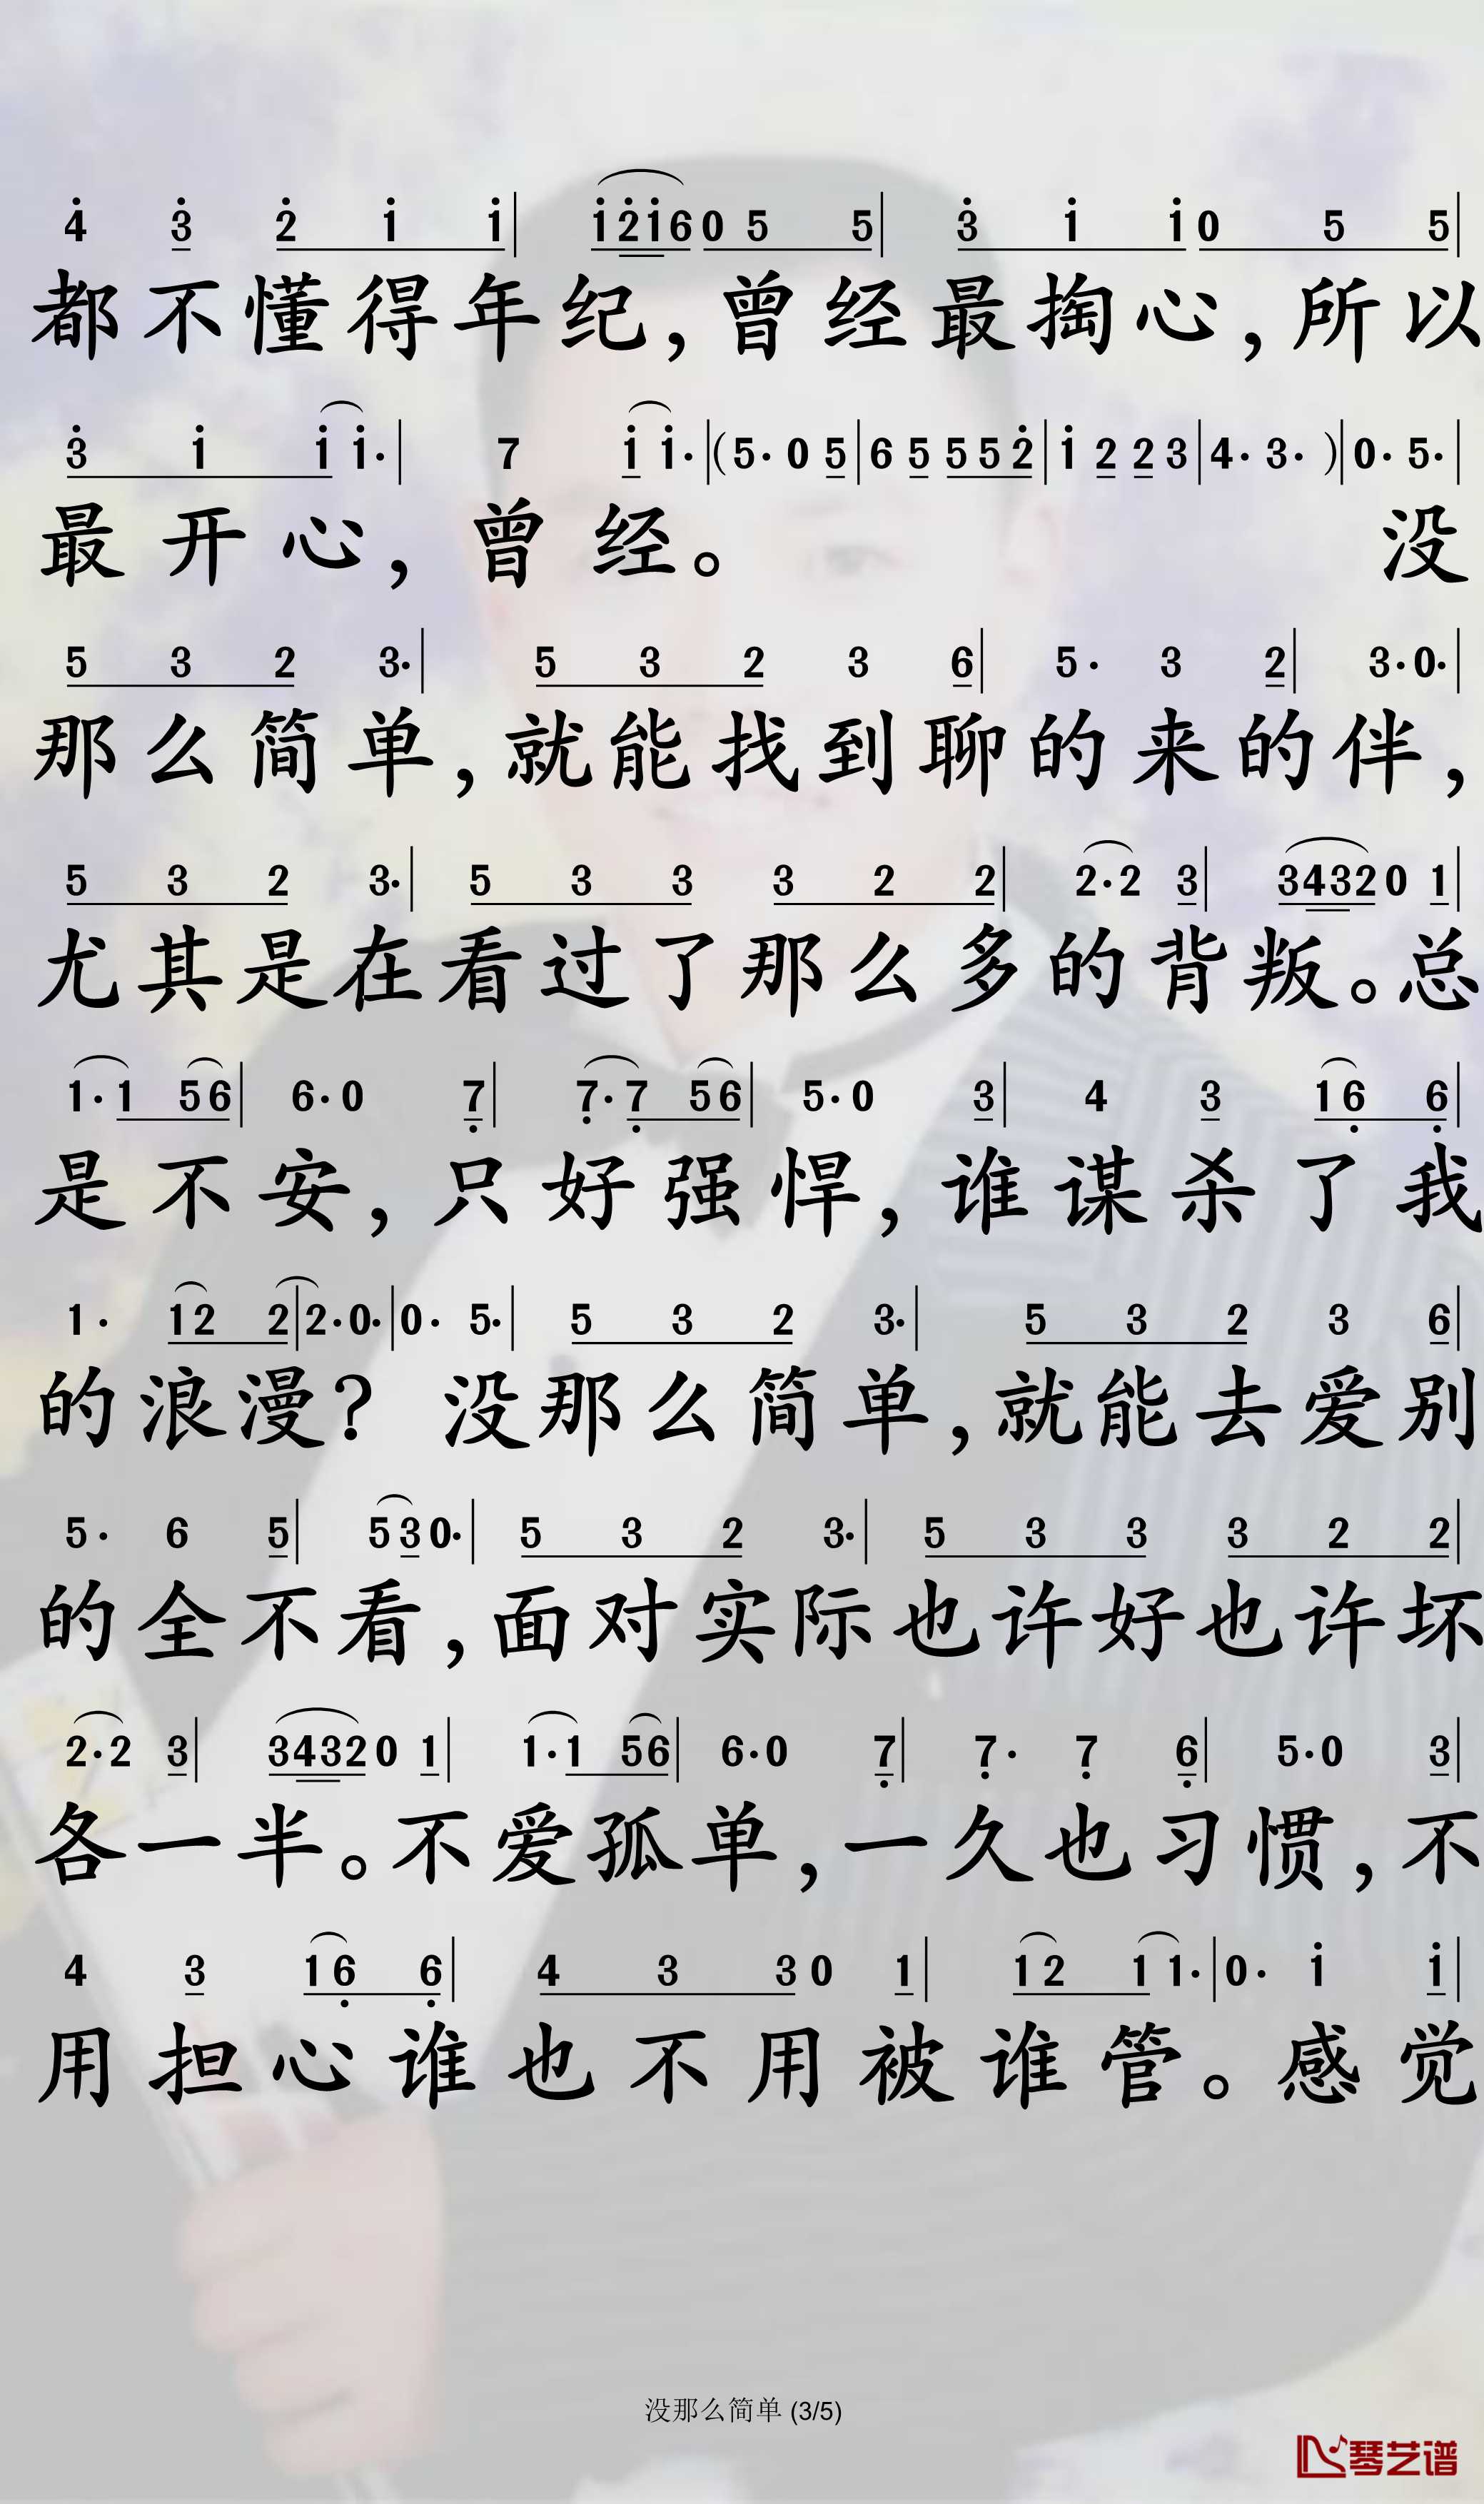 4 3 2 1 1 | 1 2 1 6 0 5 5 | 3 1 1 0 5 5 |
都不懂得年纪,曾经最掏心,所以
3 1 1 1· | 7 1 1· | (5· 0 5 | 6 5 5 5 2 | 1 2 2 3 | 4· 3· ) | 0· 5· |
最开心,曾经。 没
5 3 2 3· | 5 3 2 3 6 | 5· 3 2 | 3· 0· |
那么简单,就能找到聊的来的伴,
5 3 2 3· | 5 3 3 3 2 2 | 2· 2 3 | 3 4 3 2 0 1 |
尤其是在看过了那么多的背叛。总
1· 1 5 6 | 6· 0 7 | 7· 7 5 6 | 5· 0 3 | 4 3 1 6 6 |
是不安,只好强悍,谁谋杀了我
1· 1 2 2 | 2· 0· | 0· 5· | 5 3 2 3· | 5 3 2 3 6 |
的浪漫? 没那么简单,就能去爱别
5· 6 5 | 5 3 0· | 5 3 2 3· | 5 3 3 3 2 2 |
的全不看,面对实际也许好也许坏
2· 2 3 | 3 4 3 2 0 1 | 1· 1 5 6 | 6· 0 7 | 7· 7 6 | 5· 0 3 |
各一半。不爱孤单,一久也习惯,不
4 3 1 6 6 | 4 3 3 0 1 | 1 2 1 1· | 0· 1 1 |
用担心谁也不用被谁管。感觉
没那么简单 (3/5)
琴艺谱